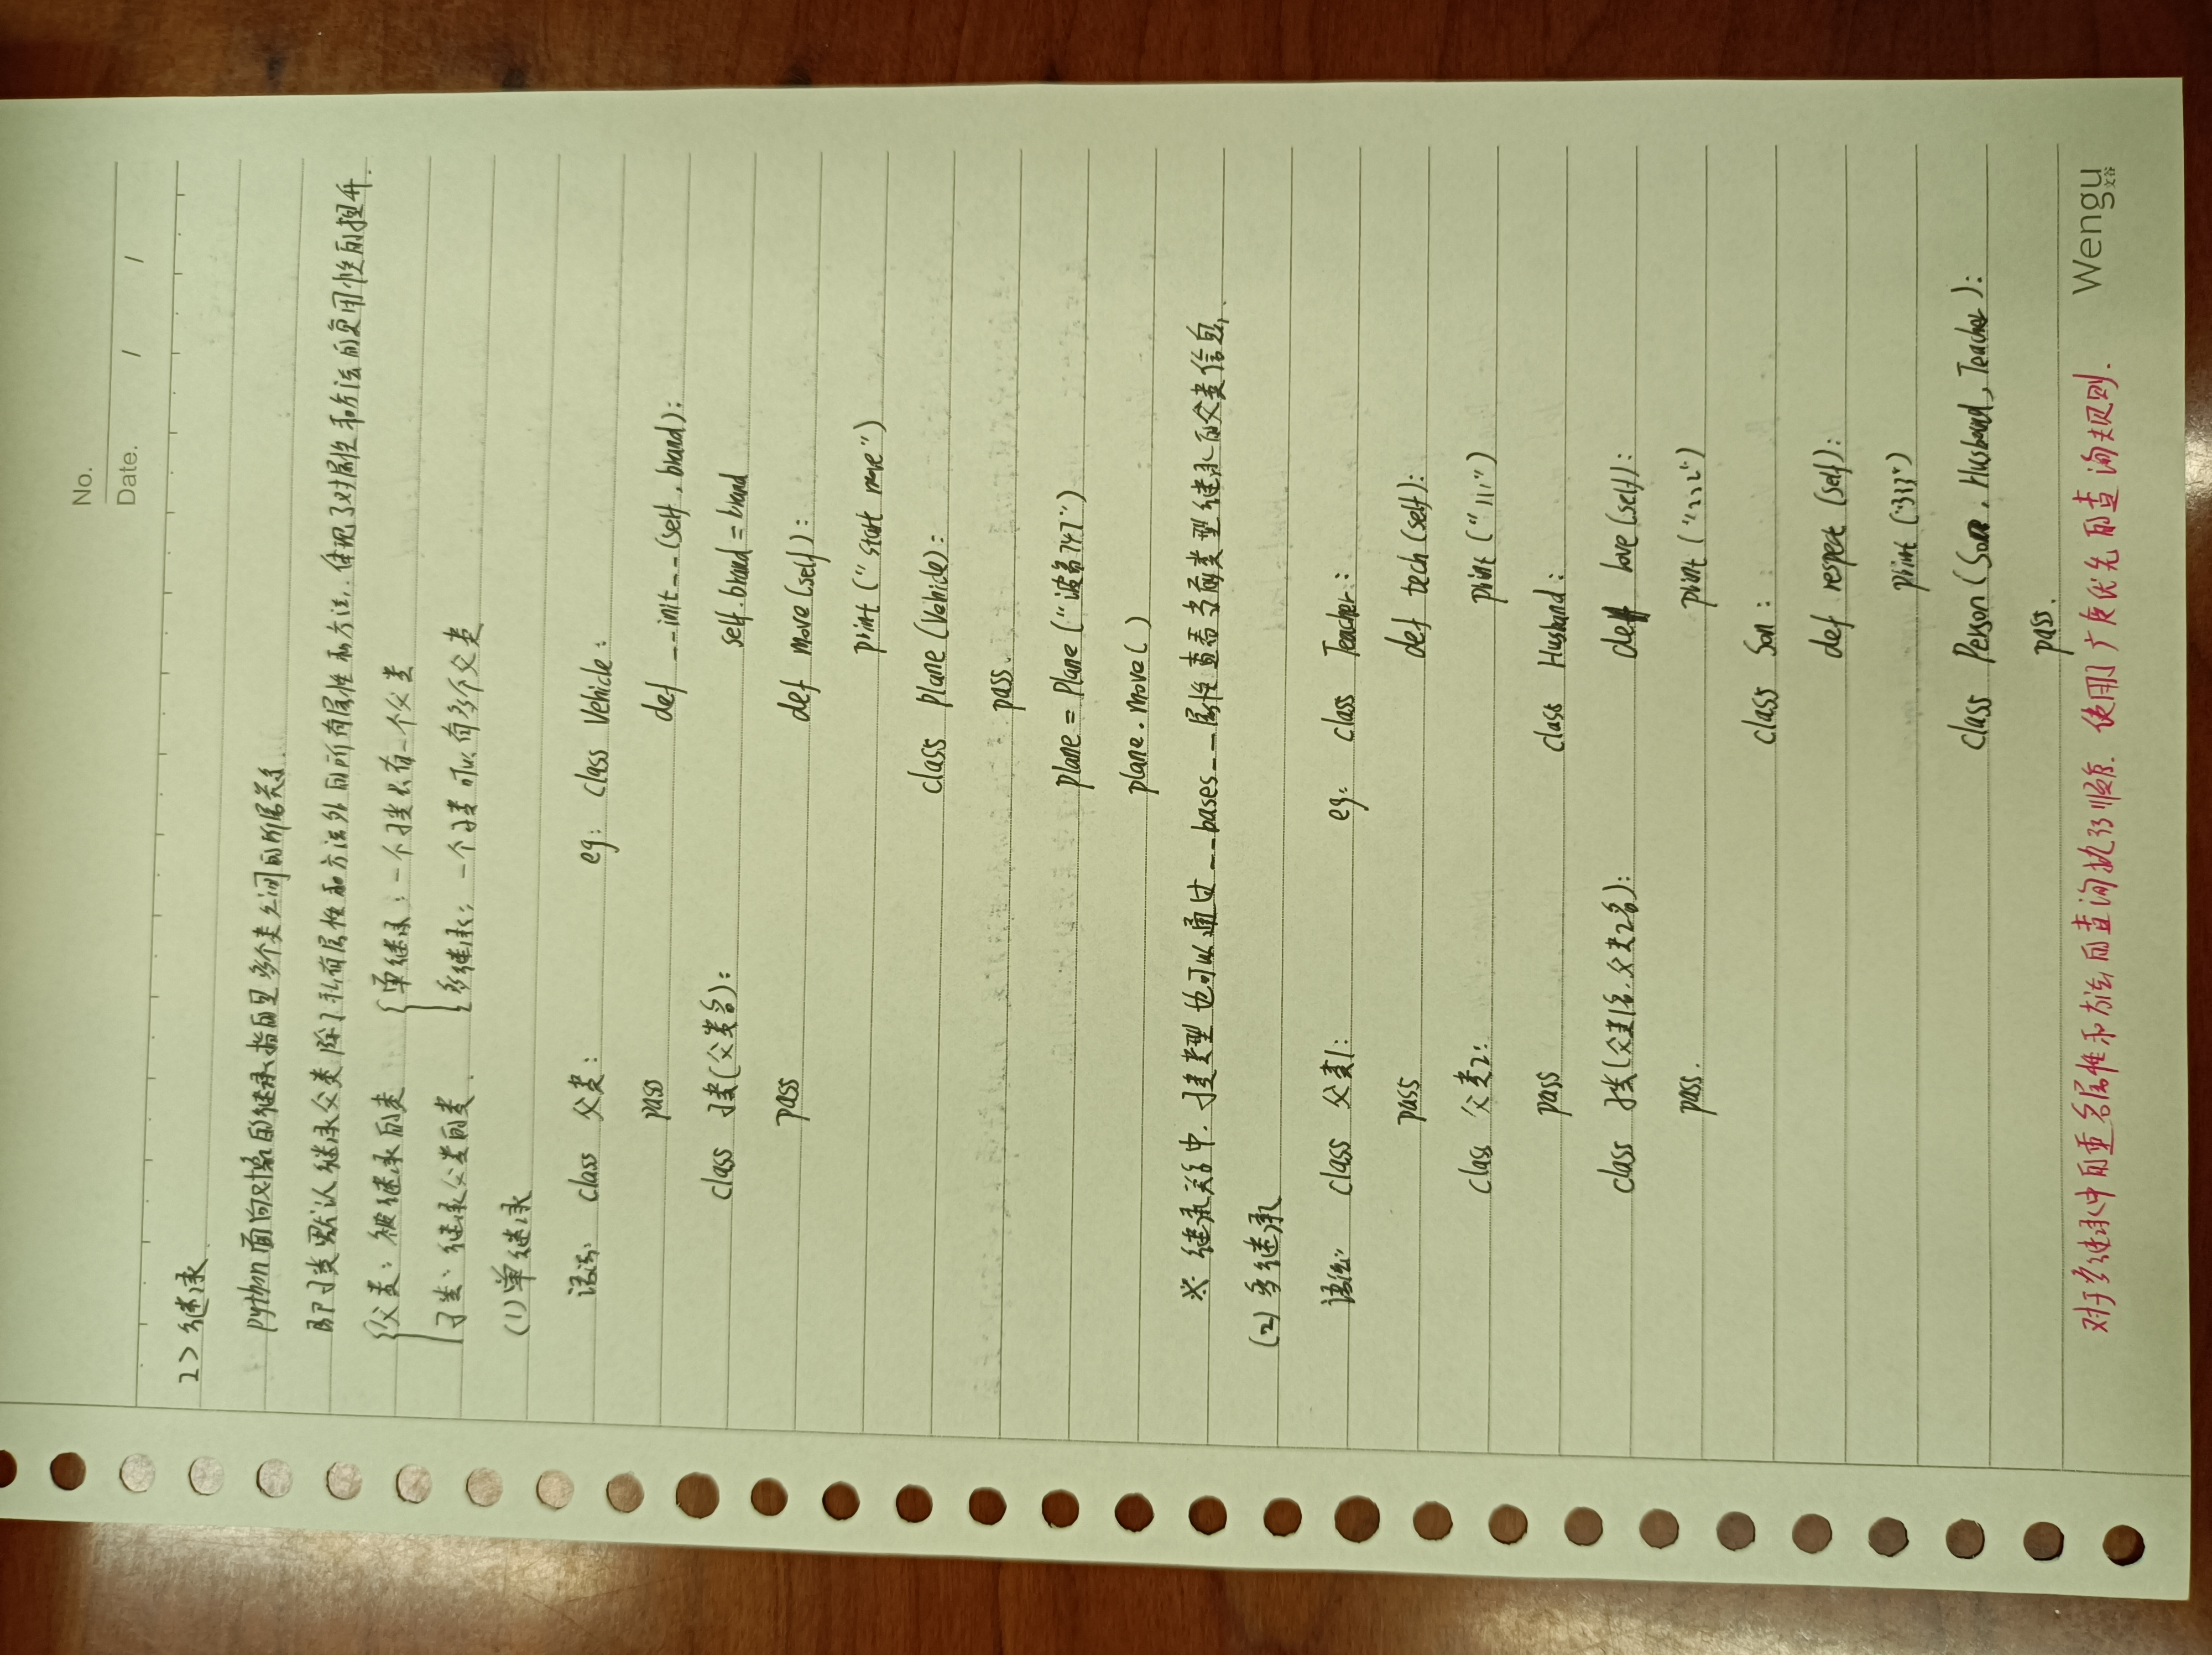 No.
Date. / /
2> 继承
python面向对象的继承指的是多个类之间的所属关系.
即子类默认继承父类除了私有属性和方法外的所有属性和方法,体现了对属性和方法的复用性的提升.
父类: 被继承的类 单继承: 一个子类只有一个父类
子类: 继承父类的类. 多继承: 一个子类可以有多个父类
(1) 单继承
语法: class 父类: eg: class Vehicle:
pass def __init__(self, brand):
self.brand = brand
class 子类(父类名): def move(self):
pass print("start move")
class plane(Vehicle):
pass.
plane = plane("波音747")
plane.move()
※ 继承关系中. 子类类型也可以通过__bases__属性查看当前类型继承的父类信息.
(2) 多继承
语法: class 父类1: eg: class Teacher:
pass def tech(self):
class 父类2: print("111")
pass class Husband:
class 子类(父类1名,父类2名): def love(self):
pass. print("222")
class Son:
def respect(self):
print("333")
class Person(Son, Husband, Teacher):
pass.
对于多继承中的重名属性和方法的查询执行顺序. 使用广度优先的查询规则.
Wengu 文谷